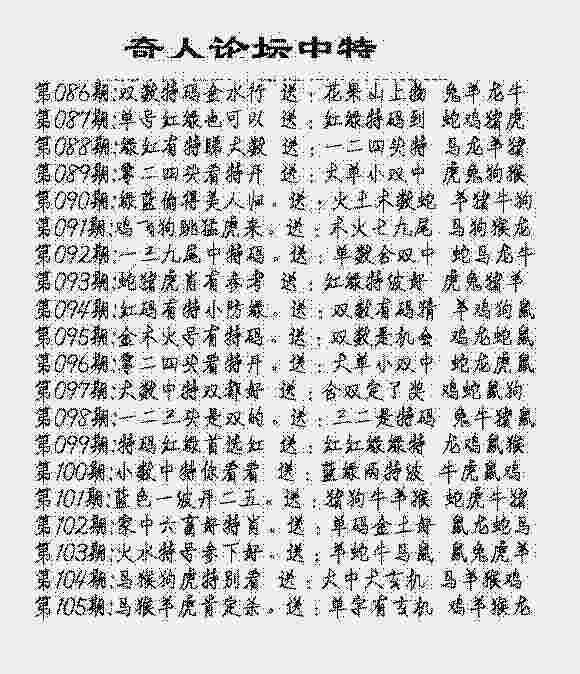 奇人论坛中特
第086期:双数特码金水行 送：花果山上扬 兔羊龙牛
第087期:单号红绿也可以 送：红绿特码到 蛇鸡猪虎
第088期:绿红有特睇大数 送：一二四头特 马龙羊猪
第089期:零二四头看特开 送：大单小双中 虎兔狗猴
第090期:绿蓝偷得美人归。送：火土木数蛇 羊猪牛狗
第091期:鸡飞狗跳猛虎来。送：木火七九尾 马狗猴龙
第092期:一三九尾中特码。送：单数合双中 蛇马龙牛
第093期:蛇猪虎肖有参考 送：红绿特波好 虎兔猪羊
第094期:红码有特小防绿。送：双数有码猜 羊鸡狗鼠
第095期:金木火号有特码。送：双数是机会 鸡龙蛇鼠
第096期:零二四头看特开。送：大单小双中 蛇龙虎鼠
第097期:大数中特双都好 送：合双定了奖 鸡蛇鼠狗
第098期:一二三头是双的。送：三二是特码 兔牛猪鼠
第099期:特码红绿首选红 送：红红绿绿特 龙鸡鼠猴
第100期:小数中特你看看 送：蓝绿两特波 牛虎鼠鸡
第101期:蓝色一波开二五。送：猪狗牛羊猴 蛇虎牛猪
第102期:家中六畜好特肖。送：单码金土好 鼠龙蛇马
第103期:火水特号参下好。送：羊蛇牛马鼠 鼠兔虎羊
第104期:马猴狗虎特别看 送：火中犬玄机 马羊猴鸡
第105期:马猴羊虎肯定杀。送：单字有玄机 鸡羊猴龙